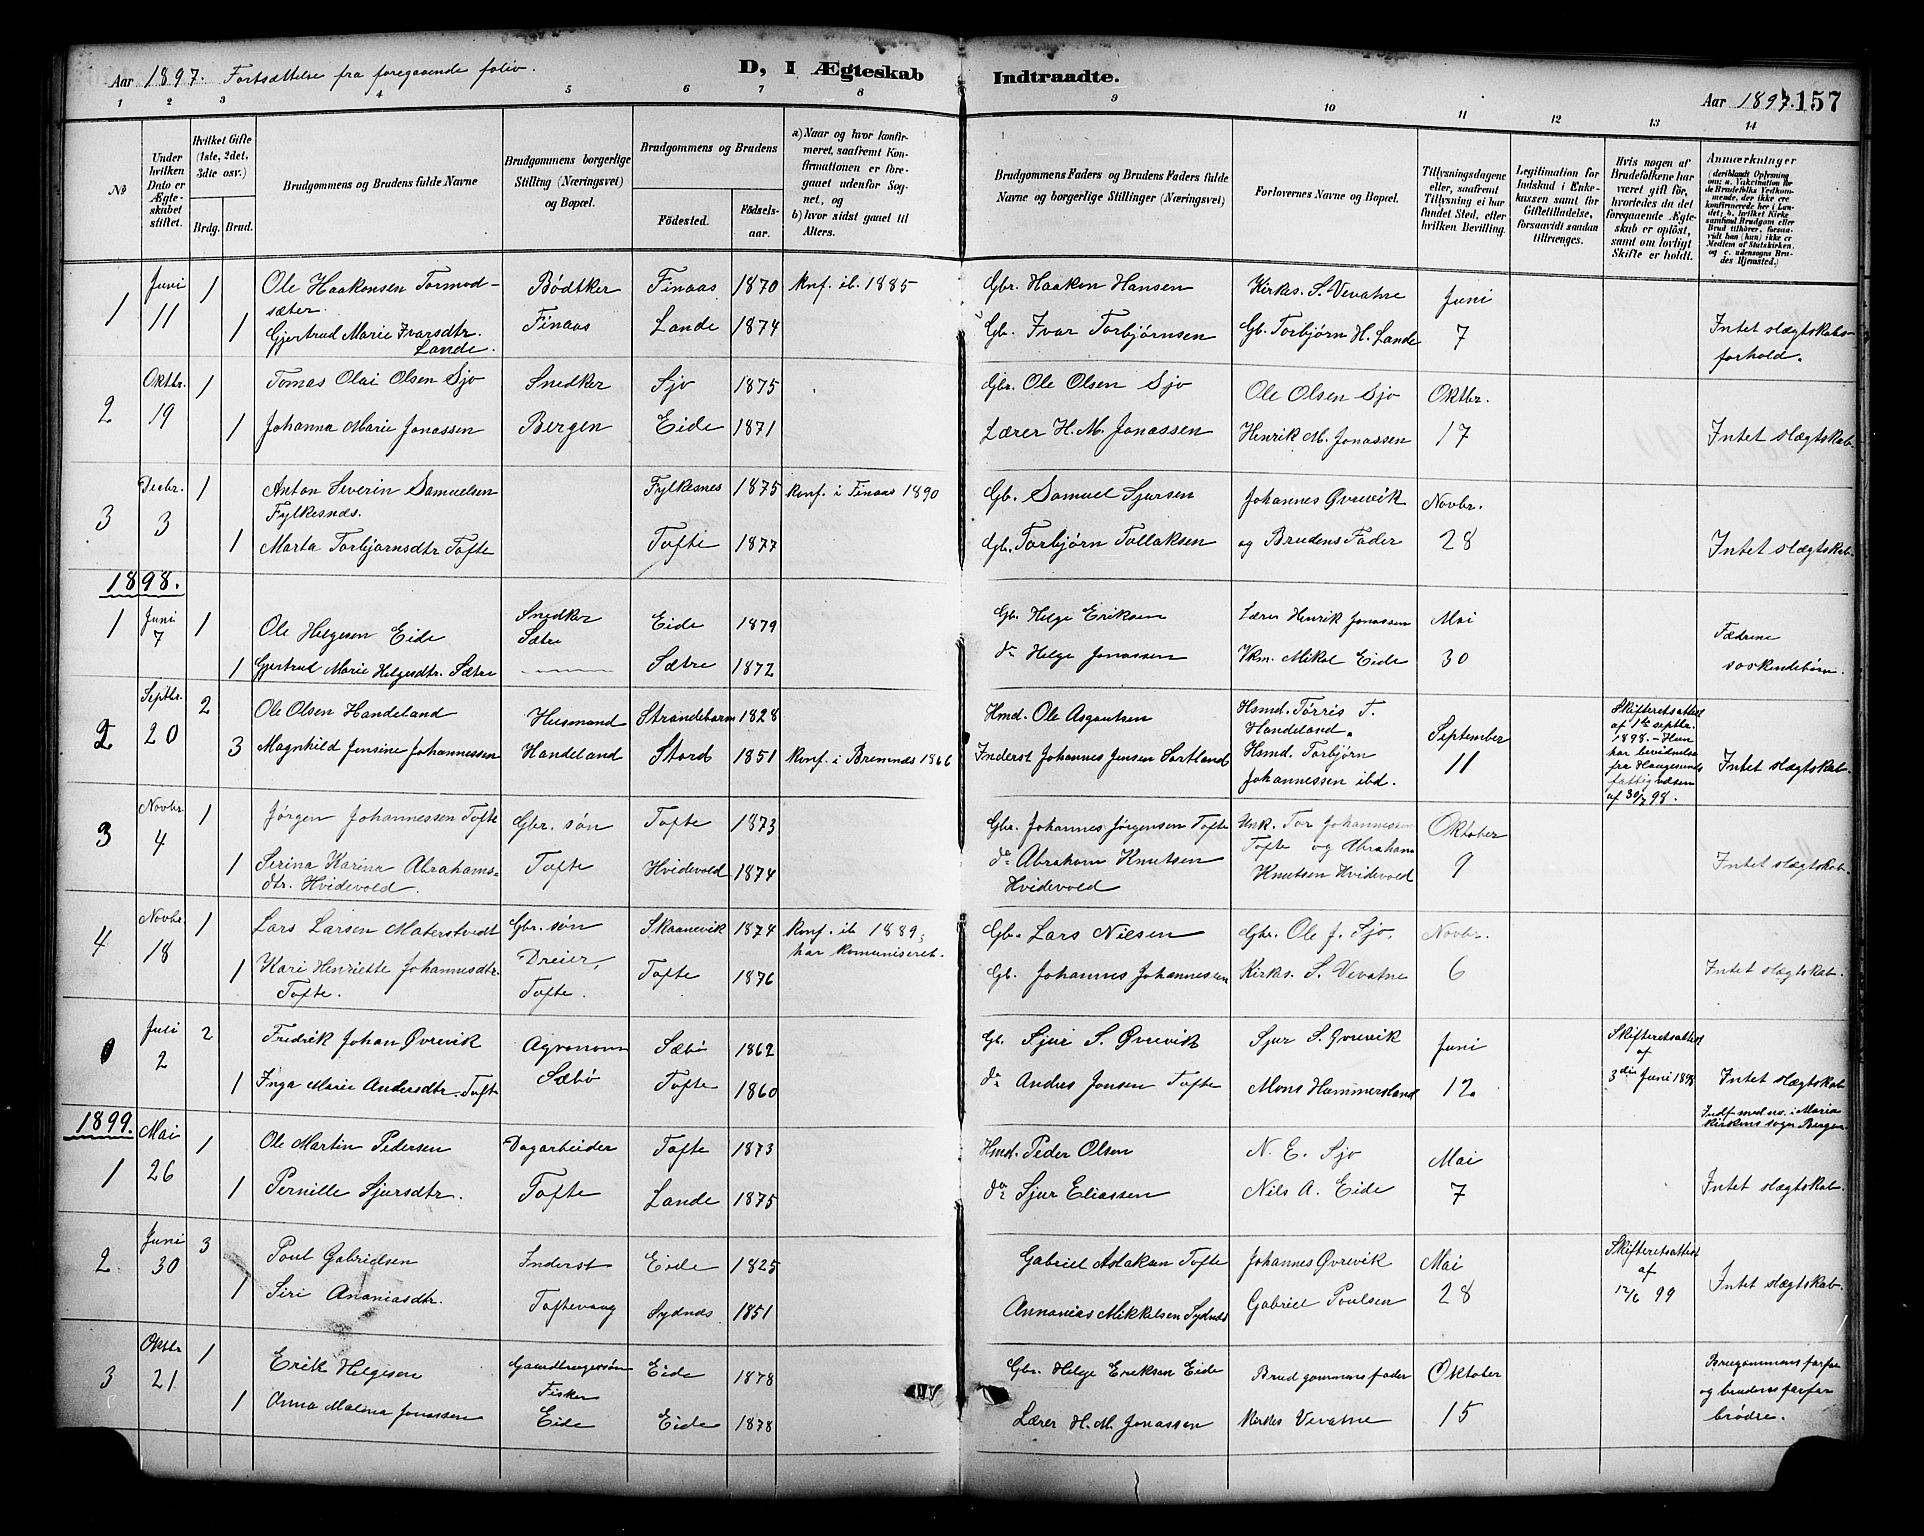 Aar 1897. Fortsættelse fra foregaaende folio.
D, I Ægteskab Indtraadte.
Aar 1897. 157
1 2 3 4 5 6 7 8 9 10 11 12 13 14
No
Under hvilken Dato er Ægteskabet stiftet.
Hvilket Gifte (1ste, 2det, 3die osv.)
Brdg. Brud.
Brudgommens og Brudens fulde Navne
Brudgommens borgerlige Stilling (Næringsvei) og Bopæl.
Brudgommens og Brudens
Fødested.
Fødselsaar.
a) Naar og hvor konfirmeret, saafremt Konfirmationen er foregaaet udenfor Sognet, og
b) hvor sidst gaaet til Alters.
Brudgommens Faders og Brudens Faders fulde Navne og borgerlige Stillinger (Næringsvei)
Forlovernes Navne og Bopæl.
Tillysningsdagene eller, saafremt Tillysning ei har fundet Sted, efter hvilken Bevilling.
Legitimation for Indskud i Enkekassen samt for Giftetilladelse, forsaavidt saadan tiltrænges.
Hvis nogen af Brudefolkene har været gift før, hvorledes da det foregaaende Ægteskab er opløst, samt om lovligt Skifte er holdt.
Anmærkninger
(deriblandt Oplysning om: a. Vakcination for de Brudefolks Vedkommende, der ikke ere konfirmerede her i Landet; b. hvilket Kirkesamfund Brudgom eller Brud tilhører, forsaavidt han (hun) ikke er Medlem af Statskirken, og c. udensogns Brudes Hjemsted.)
1 Juni 11 1 Ole Haakensen Tormodsæter. Bødtker Finaas 1870 Knf. ib. 1885 Gbr. Haaken Hansen Kirks. S. Vevatne Juni
1 Gjertrud Marie Ivarsdtr. Lande. Finaas Lande 1874 Gb. Ivar Torbjørnsen Gb. Torbjørn H. Lande 7 Intet slægtskabsforhold.
2 Oktbr. 19 1 Tomas Olai Olsen Sjo Snedker Sjo 1875 Gbr. Ole Olsen Sjo Ole Olsen Sjo Oktbr.
1 Johanna Marie Jonassen Bergen Eide 1871 Lærer H. M. Jonassen Henrik M. Jonassen 17 Intet slægtskab.
3 Decbr. 3 1 Anton Severin Samuelsen Fylkesnes. Fylkesnes 1875 Konf. i Finaas 1890 Gb. Samuel Sjursen Johannes Øvrevik Novbr.
1 Marta Torbjørnsdtr Tofte Tofte 1877 Gb. Torbjørn Tollaksen og Brudens Fader 28 Intet slægtskab.
1898.
1 Juni 7 1 Ole Helgesen Eide Snedker Sætre Eide 1879 Gb. Helge Eriksen Lærer Henrik Jonassen Mai
1 Gjertrud Marie Helgesdtr. Sætre Sætre 1872 do Helge Jonassen Vkm. Mikal Eide 30 Fædrene søskendebørn.
2 Septbr. 20 2 Ole Olsen Handeland Husmand Strandebarm 1828 Hmd. Ole Asgautsen Hsmd. Tørris T. Handeland. September Skifteretsattest af 1te septbr. 1898. - Hun har bevidnelse fra Haugesunds fattigvæsen af 30/7 98.
3 Magnhild Jensine Johannessen Handeland Stord 1851 Konf. i Bremnes 1866 Inderst Johannes Jensen Sortland Hsmd. Torbjørn Johannessen ibd. 11 Intet slægtskab.
3 Novbr 4 1 Jørgen Johannessen Tofte Gbr. søn Tofte 1873 Gbr. Johannes Jørgensen Tofte Unk. Tor Johannessen Tofte og Abraham Knutsen Hvidevold Oktober
1 Serina Karina Abrahamsdtr. Hvidevold. Tofte Hvidevold 1874 do Abraham Knutsen Hvidevold 9 Intet slægtskab.
4 Novbr 18 1 Lars Larsen Materstvedt Gbr. søn Skaanevik 1874 Konf. ib 1889; har komuniseret. Gb. Lars Nilsen Gbr. Ole J. Sjo. Novbr.
1 Kari Henriette Johannesdtr Tofte. Dreier, Tofte. Tofte 1876 Gb. Johannes Johannessen Kirks. S. Vevatne 6 Intet slægtskab.
0 Juli 2 2 Fredrik Johan Øvrevik Agronom Sæbø Sæbø 1862 Gb. Sjur S. Øvrevik Sjur S. Øvrevik Juni Skifteretsattest af 3die Juni 1898
1 Inga Marie Andersdtr. Tofte Tofte 1860 do Andres Jonsen Tofte Mons Hammersland 12. Intet slægtskab.
Indf. med no. i Mariakirkens sogn Bergen.
1899.
1 Mai 26 1 Ole Martin Pedersen Dagarbeider Tofte 1873 Hmd. Peder Olsen N. E. Sjo Mai
1 Pernille Sjursdtr. Tofte Lande 1875 do Sjur Eliassen Nils A. Eide 7 Intet slægtskab.
2 Juni 30 3 Poul Gabrielsen Inderst Eide 1825 Gabriel Aslaksen Tofte Johannes Øvrevik Mai Skifteretsattest af 12/6 99
1 Siri Ananiasdtr. Toftevaag Sydnes 1851 Annanias Mikkelsen Sydnes Gabriel Poulsen 28 Intet slægtskab.
3 Oktbr 21 1 Erik Helgesen Gaardbrugersøn Fisker Eide 1878 Gbr. Helge Eriksen Eide Brudgommens fader Oktober Brudgommens farfar og brudens farfar brødre.
1 Anna Malena Jonassen Eide Eide 1878 Lærer H. M. Jonassen Kirks Vevatne 15